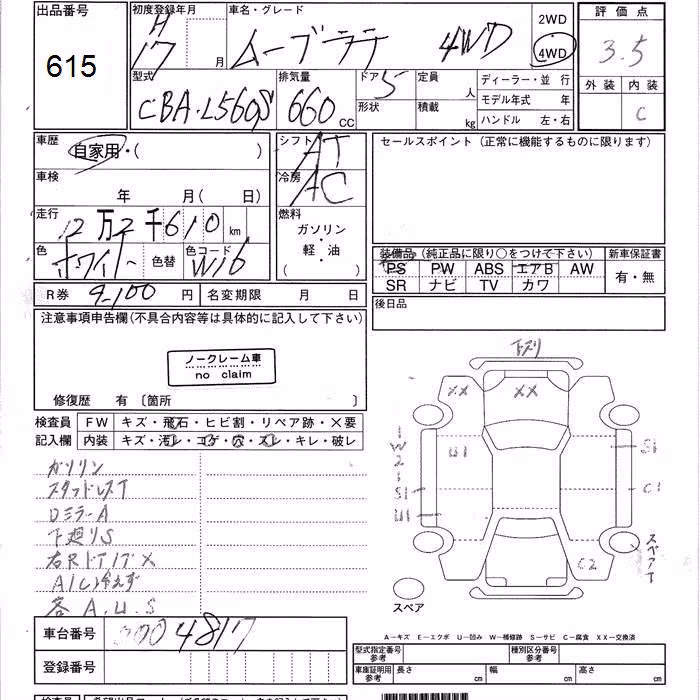 出品番号
615
初度登録年月
H
17
月
車名・グレード
ムーブラテ 4WD
2WD
4WD
評価点
3.5
外装
内装
C
型式
CBA-L560S
排気量
660
CC
ドア
5
形状
定員
人
積載
kg
ディーラー・並 行
モデル年式 年
ハンドル 左・右
車歴
自家用・( )
シフト
AT
冷房
AC
車検
年 月( 日)
走行
12万2千610
km
燃料
ガソリン
軽・油
( )
色
ホワイト
色替
色コード
W16
R券
9-100
円
名変期限 月 日
セールスポイント (正常に機能するものに限ります)
装備品 (純正品に限り○をつけて下さい)
新車保証書
PS PW ABS エアB AW
SR ナビ TV カワ
有・無
後日品
注意事項申告欄(不具合内容等は具体的に記入して下さい)
ノークレーム車
no claim
修復歴 有 〔箇所 〕
検査員
記入欄
FW
キズ・飛石・ヒビ割・リペア跡・×要
内装
キズ・汚レ・コゲ・穴・スレ・キレ・破レ
ガソリン
スタッドレスT
DミラーA
下廻りS
A/C冷えず
各 A.U.S
下スリ
XX
XX
U1
S1
C1
1
W
2
1
S1
U1
C2
スペアT
スペア
A−キズ E−エクボ U−凹み W−補修跡 S−サビ C−腐食 XX−交換済
車台番号
0004817
登録番号
型式指定番号
参考
種別区分番号
参考
車庫証明用
参考
長さ cm
幅 cm
高さ cm